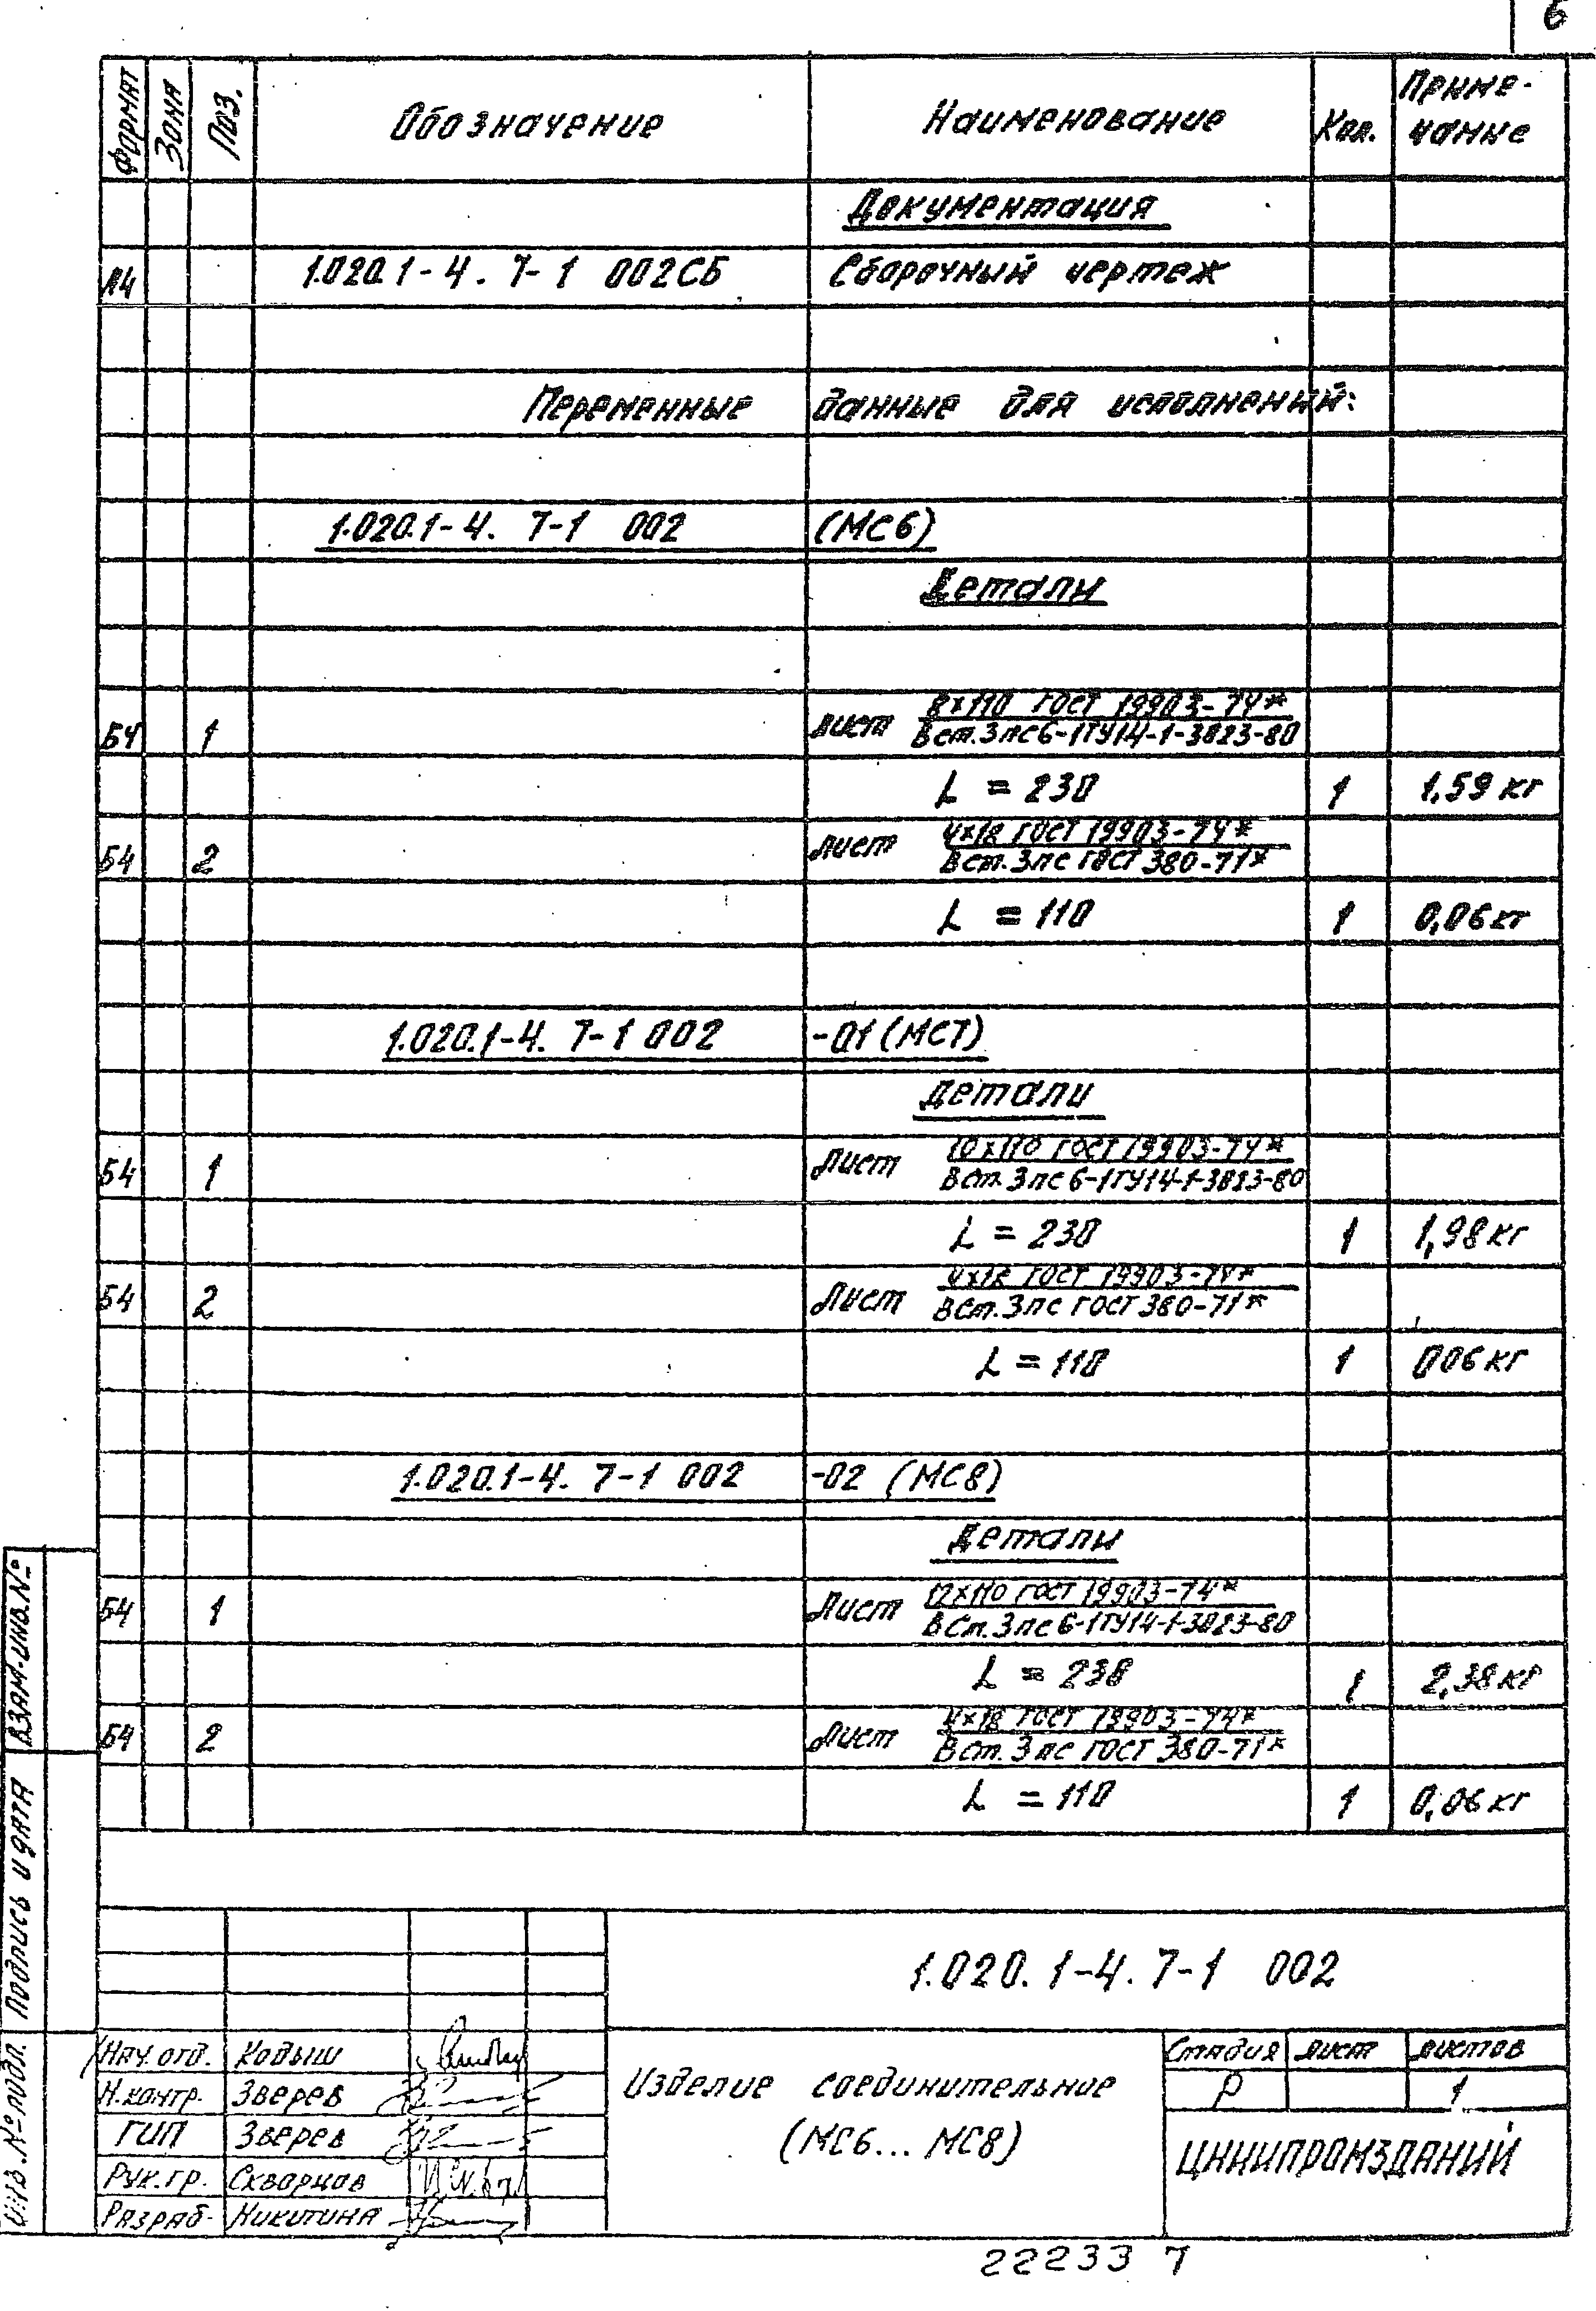 6
Формат Зона Поз. Обозначение Наименование Кол. Приме-
чание
Документация
А4 1.020.1-4. 7-1 002СБ Сборочный чертеж
Переменные данные для исполнений:
1.020.1-4. 7-1 002 (МС6)
Детали
Б4 1 Лист 8х110 ГОСТ 19903-74*
ВСт.3пс6-1ТУ14-1-3023-80
L = 230 1 1,59 кг
Б4 2 Лист 4х18 ГОСТ 19903-74*
ВСт.3пс ГОСТ 380-71*
L = 110 1 0,06 кг
1.020.1-4. 7-1 002 -01 (МС7)
Детали
Б4 1 Лист 10х110 ГОСТ 19903-74*
ВСт.3пс6-1ТУ14-1-3023-80
L = 230 1 1,98 кг
Б4 2 Лист 4х18 ГОСТ 19903-74*
ВСт.3пс ГОСТ 380-71*
L = 110 1 0 06 кг
1.020.1-4. 7-1 002 -02 (МС8)
Детали
Б4 1 Лист 12х110 ГОСТ 19903-74*
ВСт.3пс6-1ТУ14-1-3023-80
L = 230 1 2,38 кг
Б4 2 Лист 4х18 ГОСТ 19903-74*
ВСт.3пс ГОСТ 380-71*
L = 110 1 0,06 кг
Взам.инв.№
Подпись и дата
Инв.№подл.
1.020.1-4. 7-1 002
Нач.отд. Кодыш
Н.контр. Зверев
ГИП Зверев
Рук.гр. Скворцов
Разраб. Никитина
Изделие соединительное
(МС6... МС8)
Стадия Лист Листов
Р 1
ЦНИИПРОМЗДАНИЙ
22233 7